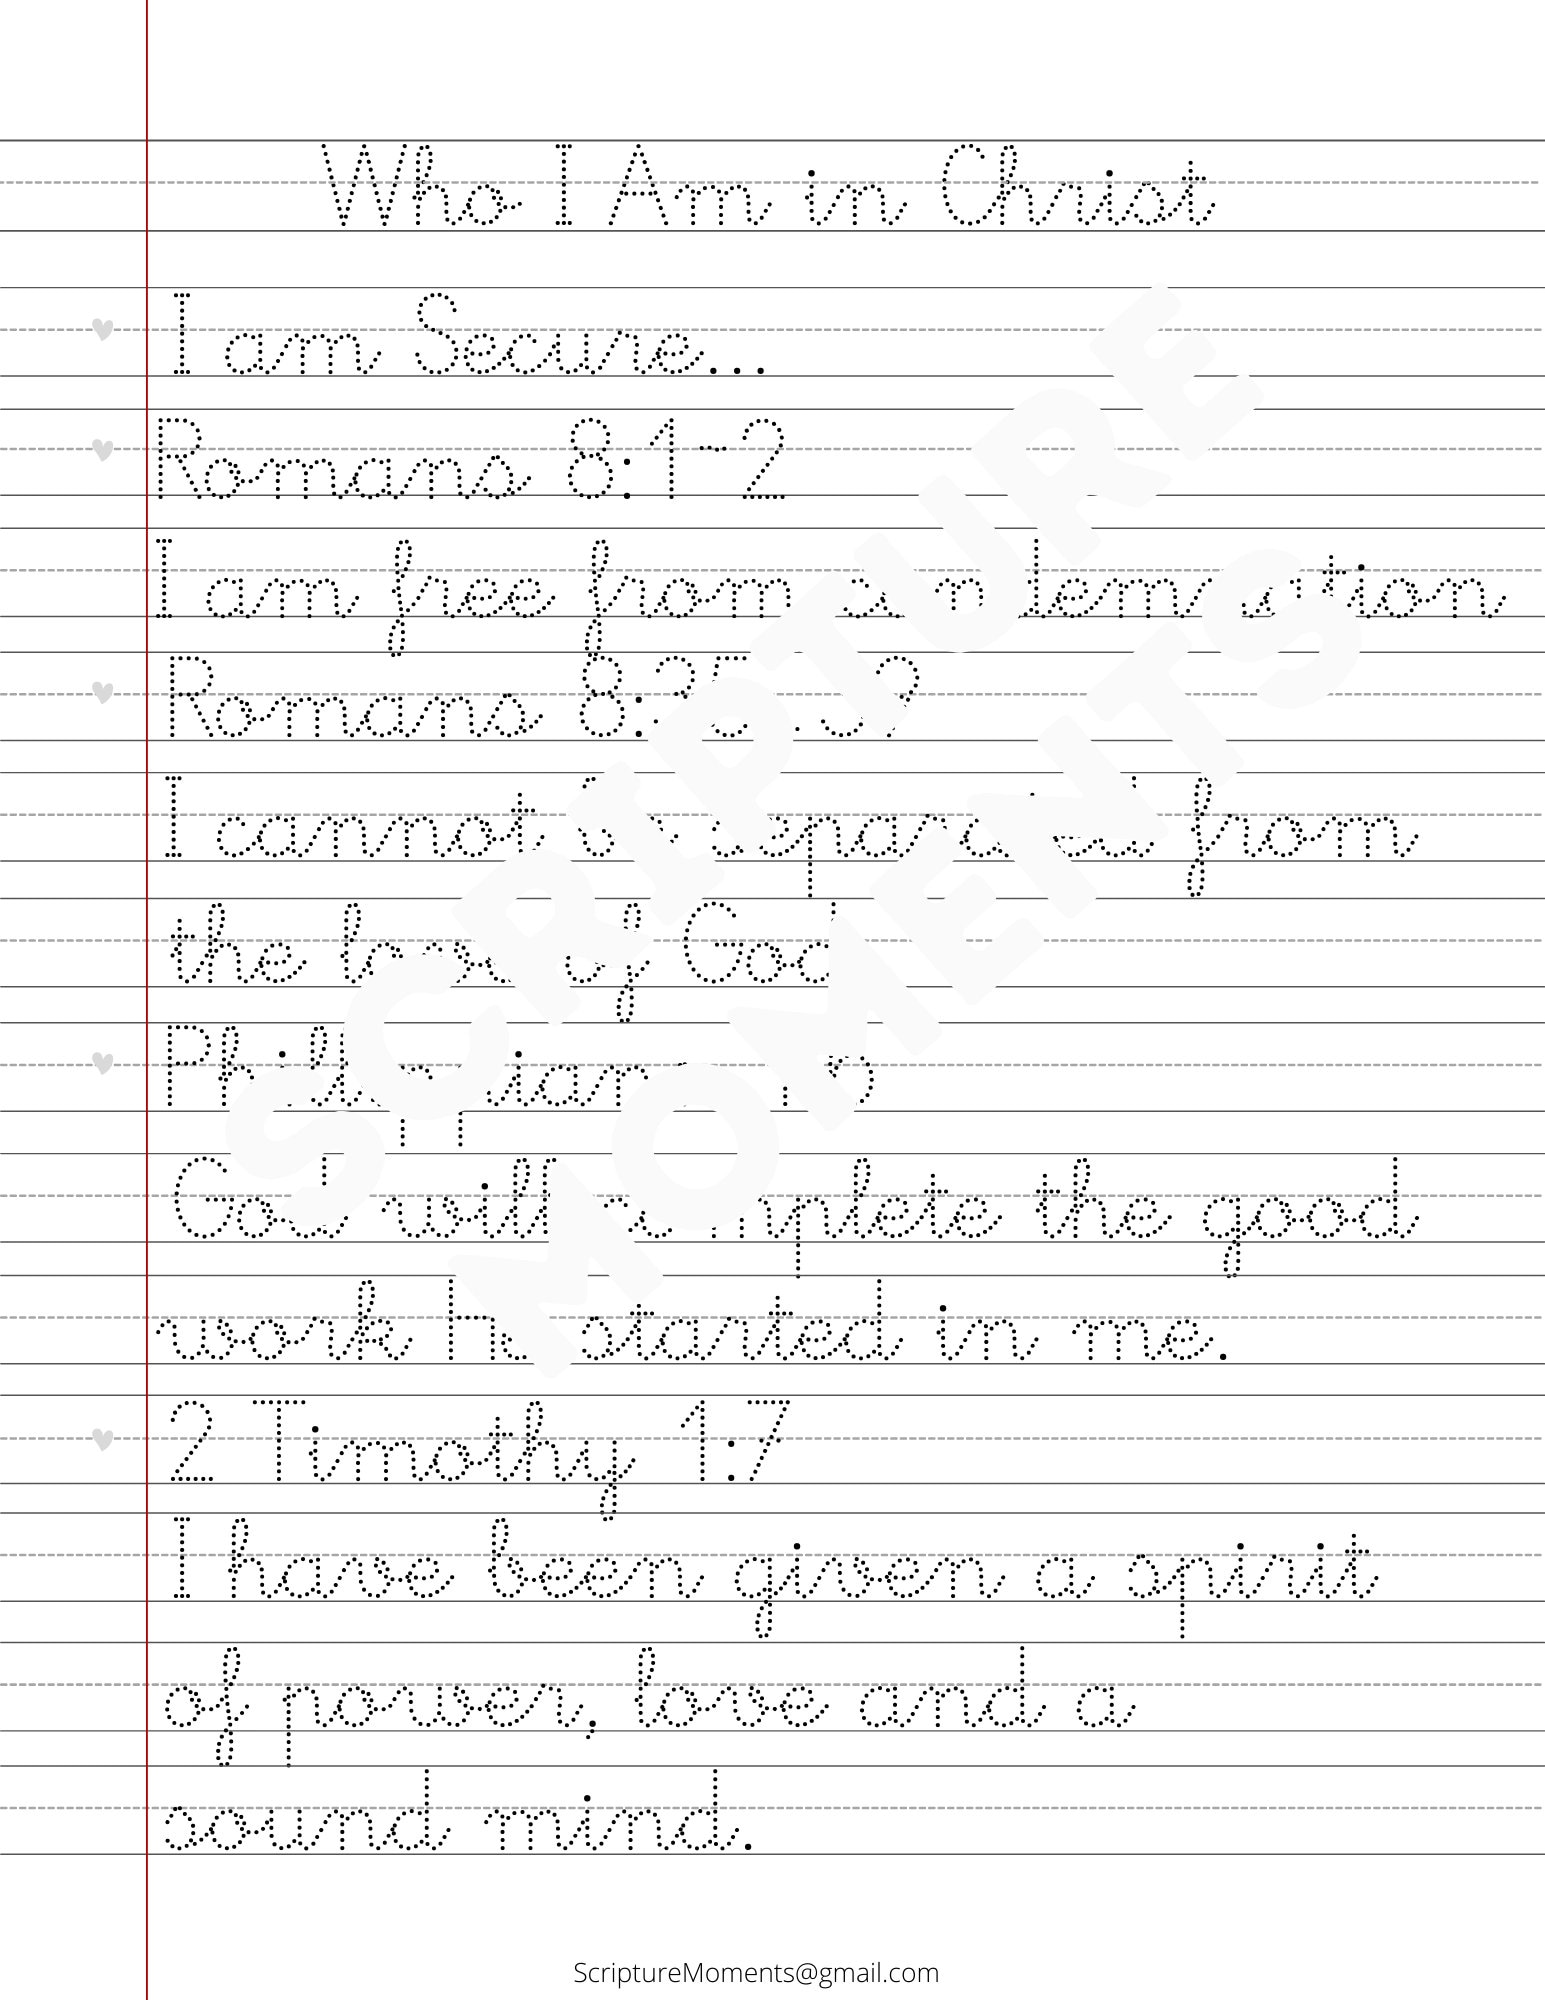 Who I Am in Christ
I am Secure...
Romans 8:1-2
I am free from condemnation
Romans 8:35-39
I cannot be separated from
the love of God
Philippians
God will complete the good
work he started in me.
2 Timothy 1:7
I have been given a spirit
of power, love and a
sound mind.
SCRIPTURE
MOMENTS
ScriptureMoments@gmail.com